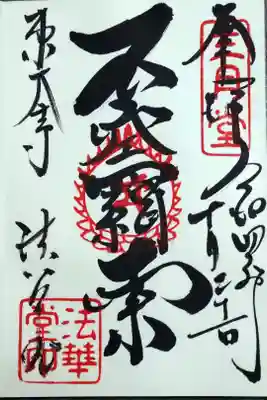 奉拝
三月堂
令和四年
不空羂索
東大寺
法華堂
法華
堂印